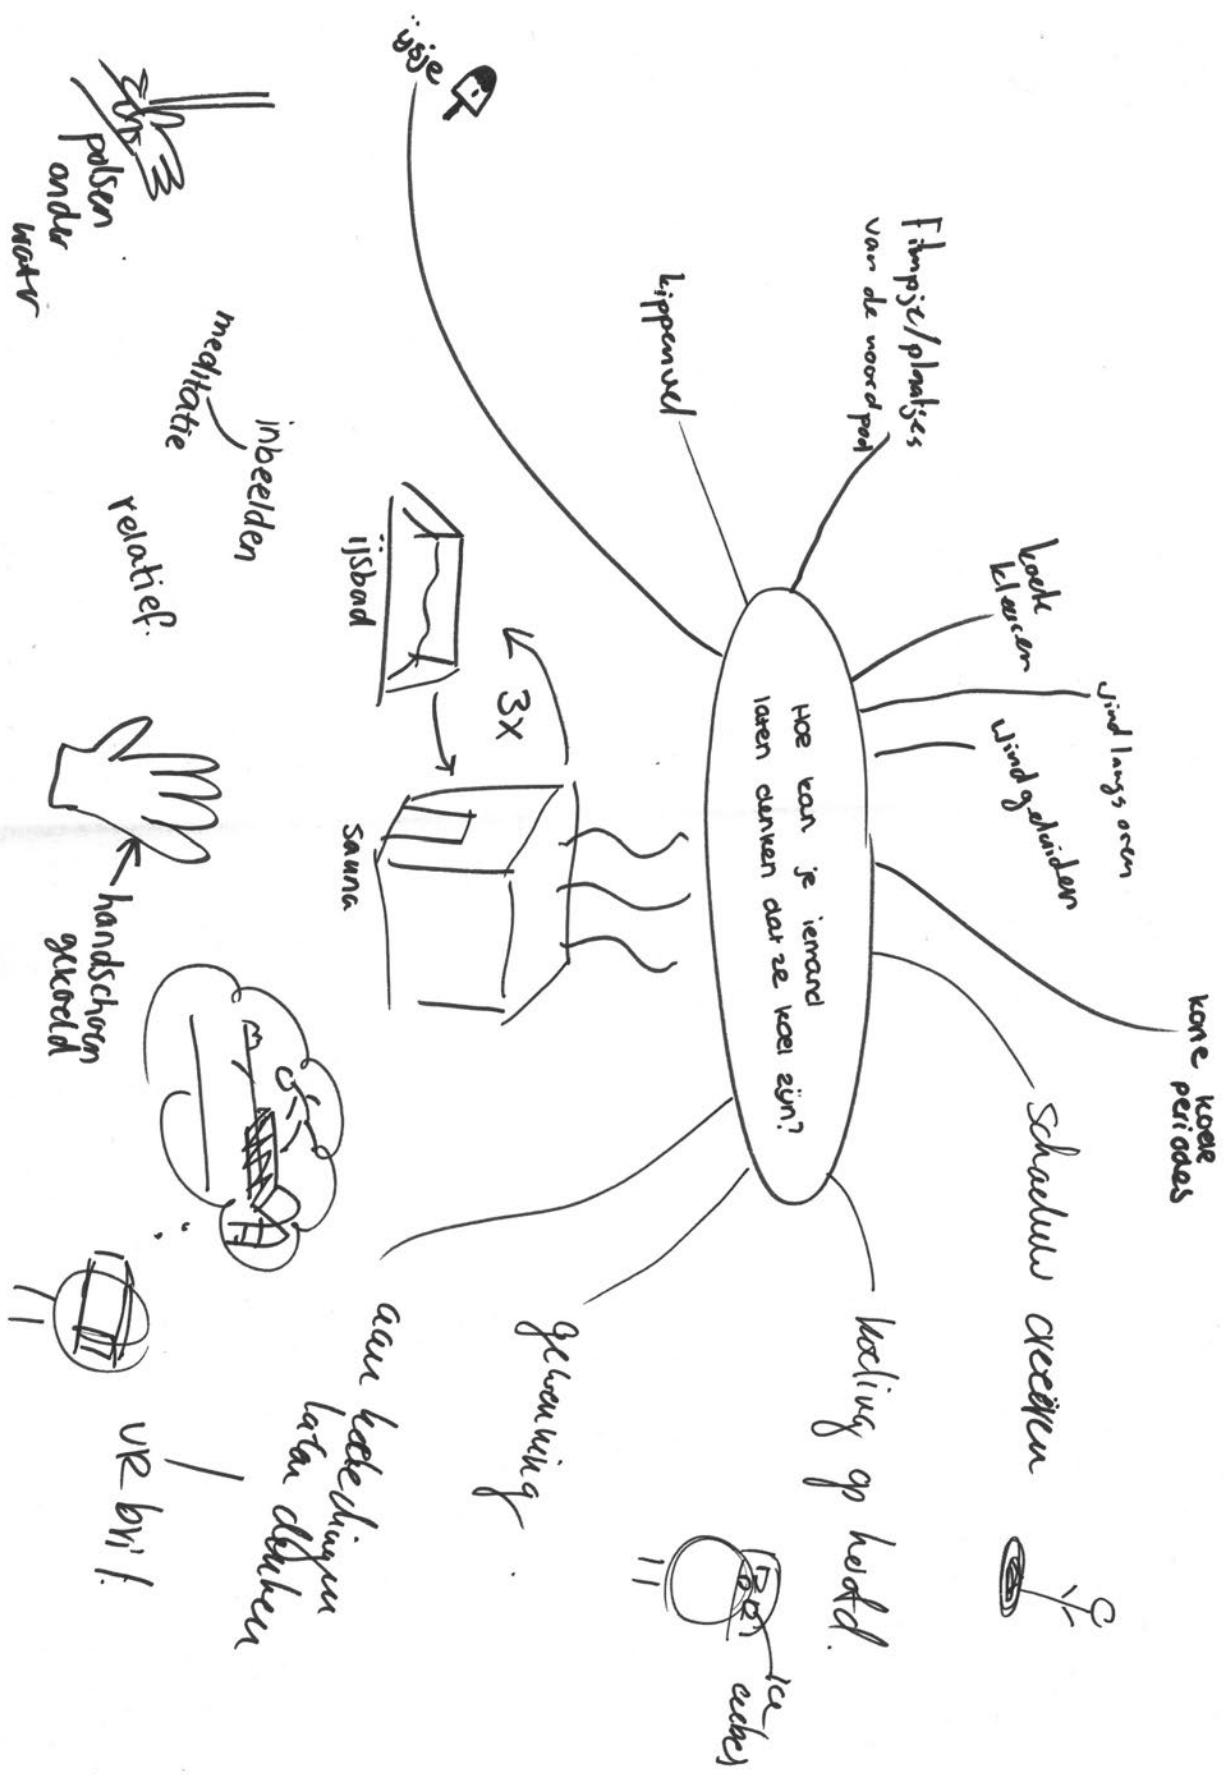 Hoe kan je iemand
laten denken dat ze koel zijn?
ijsje
kippenvel
Filmpje/plaatjes
van de noordpool
koele
kleuren
wind langs oren
windgeluiden
korte koele
periodes
schaduw creeëren
koeling op hoofd.
ice
cubes
gewenning
aan koele dingen
laten denken
VR bril.
sauna
3x
ijsbad
handschoen
gekoeld
relatief.
inbeelden
meditatie
polsen
onder
water